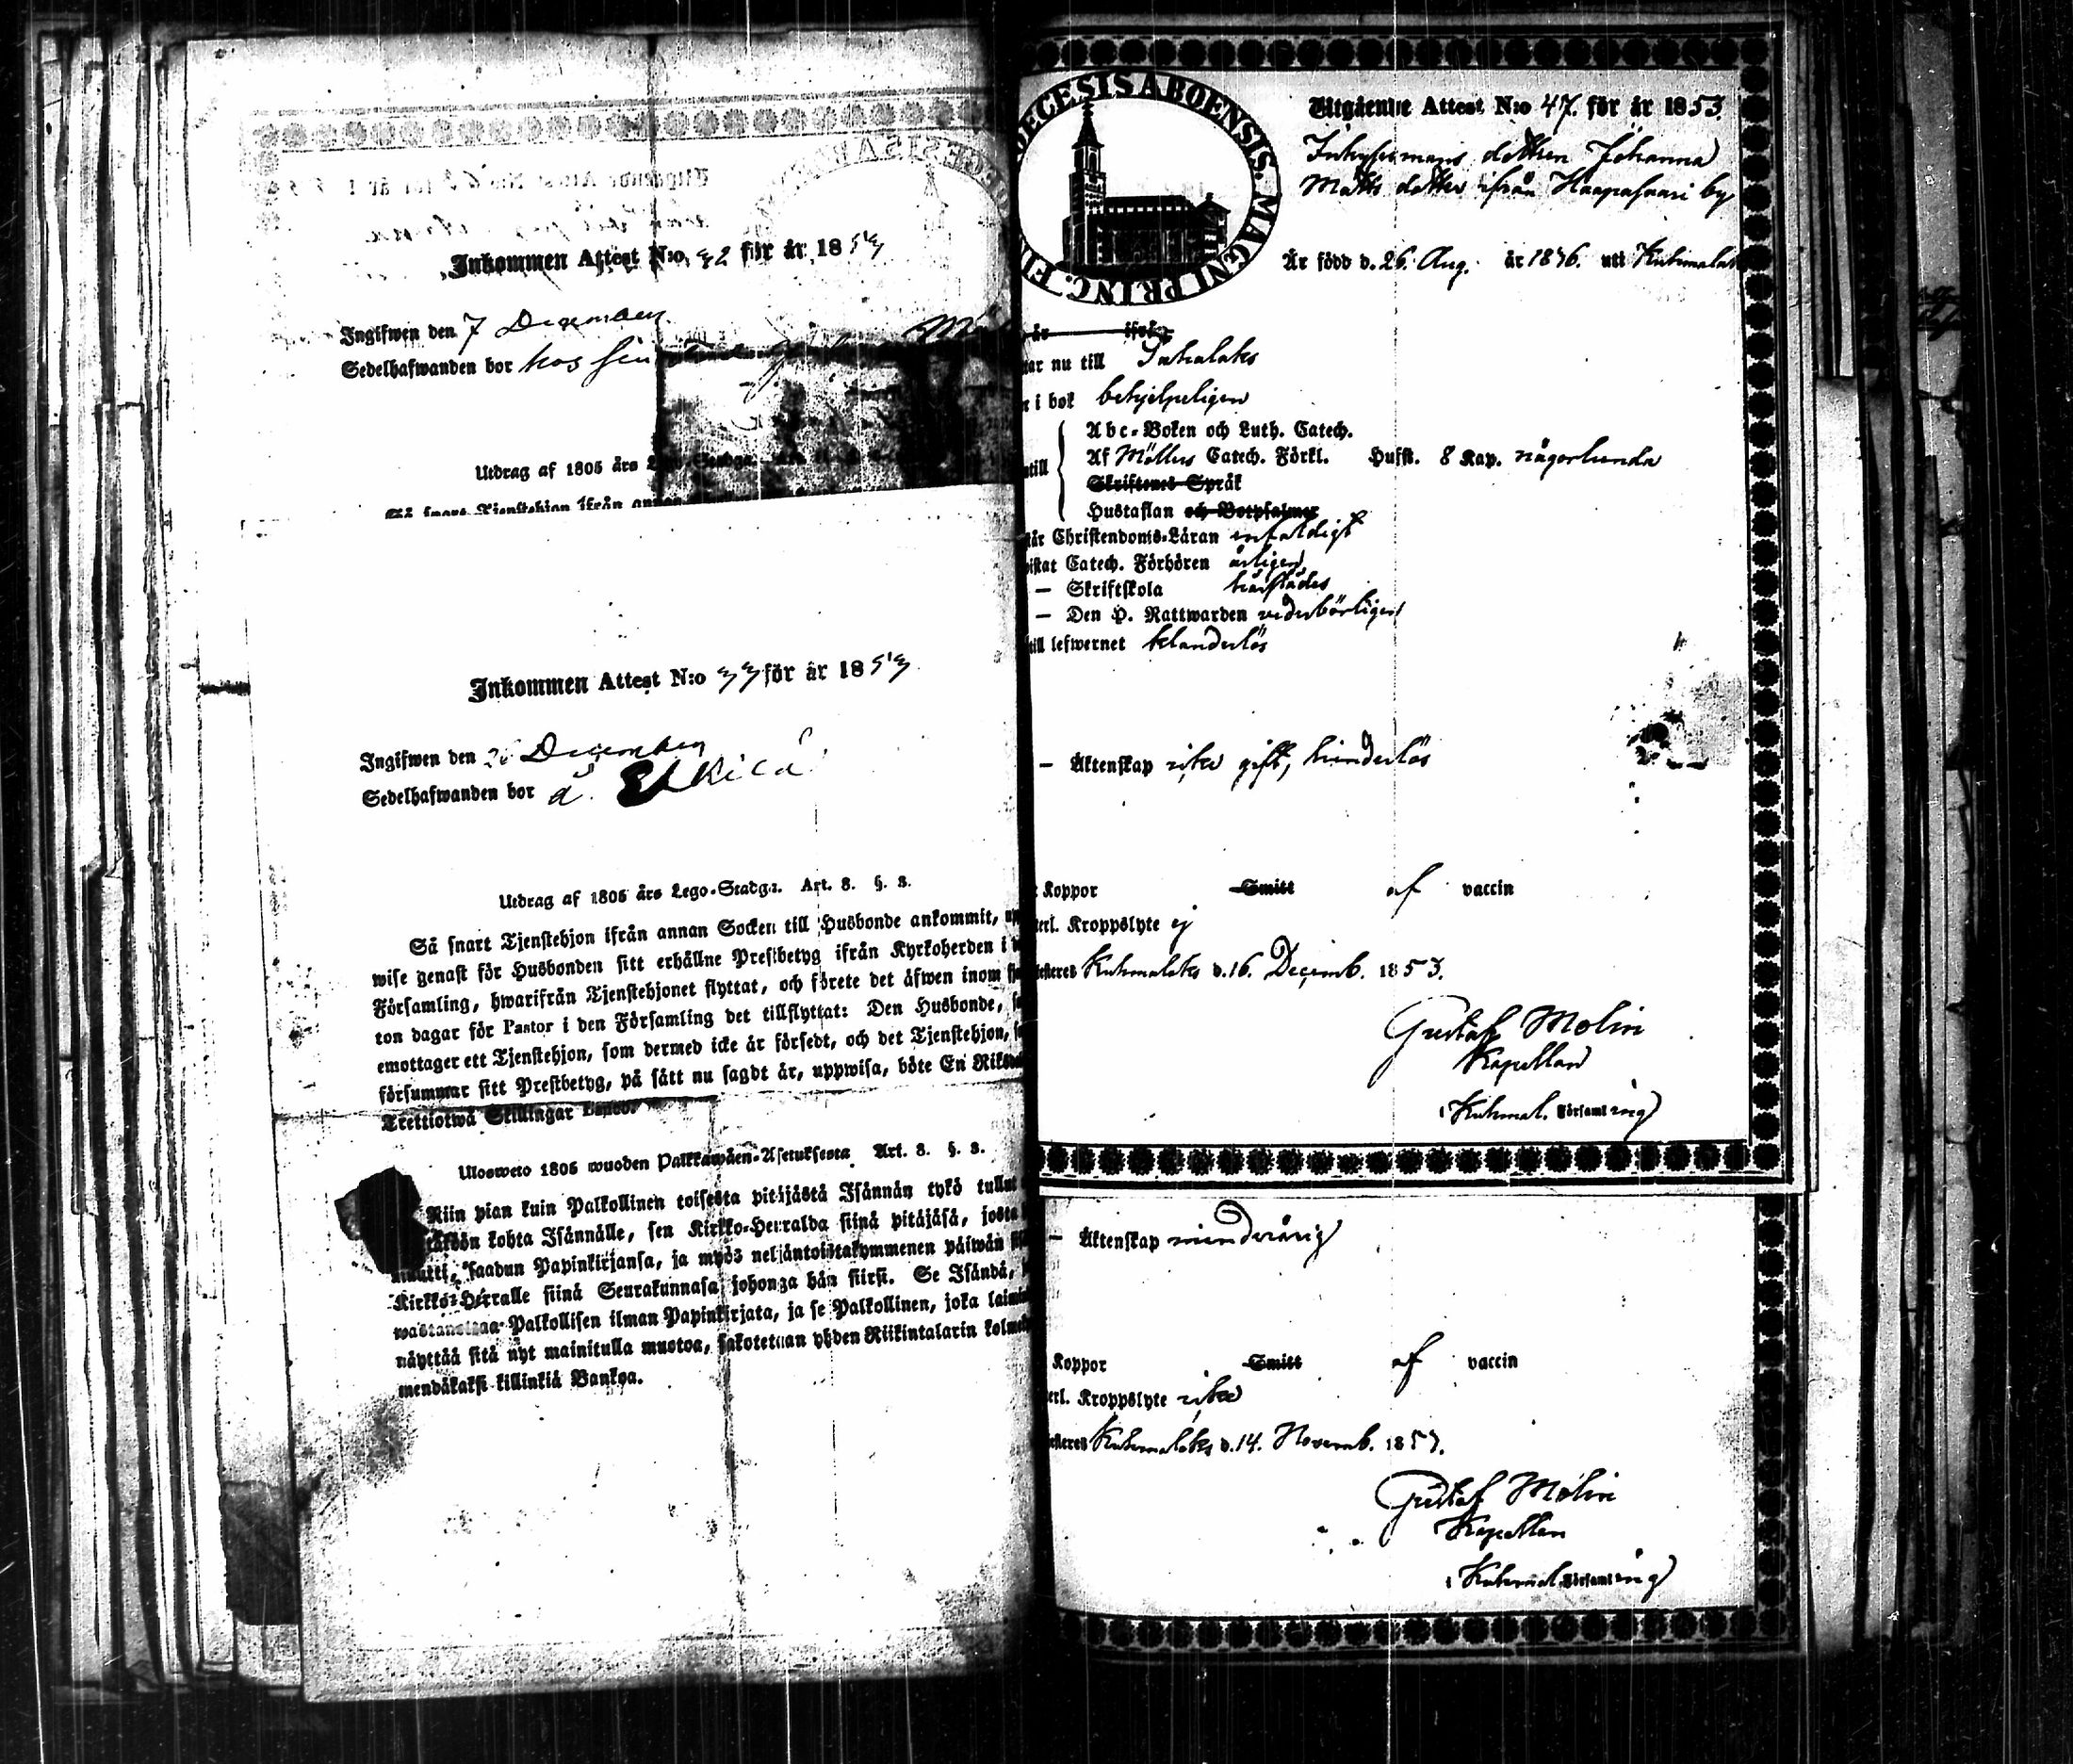 Inkommen Attest N:o 32 för år 1853
Ingifwen den 7 December
Sedelhafwanden bor hos sin
Utdrag af 1805 års
Så snart Tjenstehjon ifrån annan
Inkommen Attest N:o 33 för år 1853
Ingifwen den 26 December
Sedelhafwanden bor å
Utdrag af 1805 års Lego-Stadga. Art. 8. §. 3.
Så snart Tjenstehjon ifrån annan Socken till Husbonde ankommit,
wise genast för Husbonden sitt erhållne Prestbetyg ifrån Kyrkoherden i
Församling, hwarifrån Tjenstehjonet flyttat, och förete det äfwen inom
ton dagar för Pastor i den Församling det tillflyttat: Den Husbonde,
emottager ett Tjenstehjon, som dermed icke är försedt, och det Tjenstehjon,
försummar sitt Prestbetyg, på sätt nu sagdt är, uppwisa, böte En Riksd
Trettiotwå Skillingar Banco.
Ulosweto 1805 wuoden Palkkawäen-Asetuksesta Art. 8. §. 3.
Niin pian kuin Palkollinen toisesta pitäjästä Isännän tykö tullut
kohta Isännälle, sen Kirkko-Herralda siinä pitäjäsä, josta
muutti, saadun Papinkirjansa, ja myös neljäntoistakymmenen päiwän
Kirkko-Herralle siinä Seurakunnasa johonga hän siirsi. Se Isändä,
wastanottaa Palkollisen ilman Papinkirjata, ja se Palkollinen, joka
näyttää sitä nyt mainitulla muotoa, sakotetaan yhden Riikintalarin
mendäkaksi killinkiä Bankoa.
DECESIS ABOENSIS. MAGNI PRINC. FIN
Utgående Attest N:o 47. för år 1853.
Inhysesmans dottren Johanna
Matts dotter ifrån Haapasaari by
Är född d. 26. Aug. år 1836. uti Kuhmalaks
år ifrån
nu till Sahalaks
i bok behjelpeligen
Abc-Boken och Luth. Catech.
Af Möllers Catech. Förkl. Husst. 8 Kap. någorlunda
Skriftenes Språk
Hustaflan och Botpsalmer
Christendoms-Läran enfaldigt
Catech. Förhören årligen
— Skriftskola härstädes
— Den H. Nattwarden vederbörligen
till lefwernet klanderlös
— Äktenskap icke gift, hinderlös
Koppor Smitt af vaccin
Kroppslyte ej
Kuhmalaks d. 16. Decemb. 1853.
Gustaf Molin
Kapellan
i Kuhmal. Församling
— Äktenskap minderårig
Koppor Smitt af vaccin
Kroppslyte icke
Kuhmalaks d. 14. Novemb. 1853.
Gustaf Molin
Kapellan
i Kuhmal. Församling